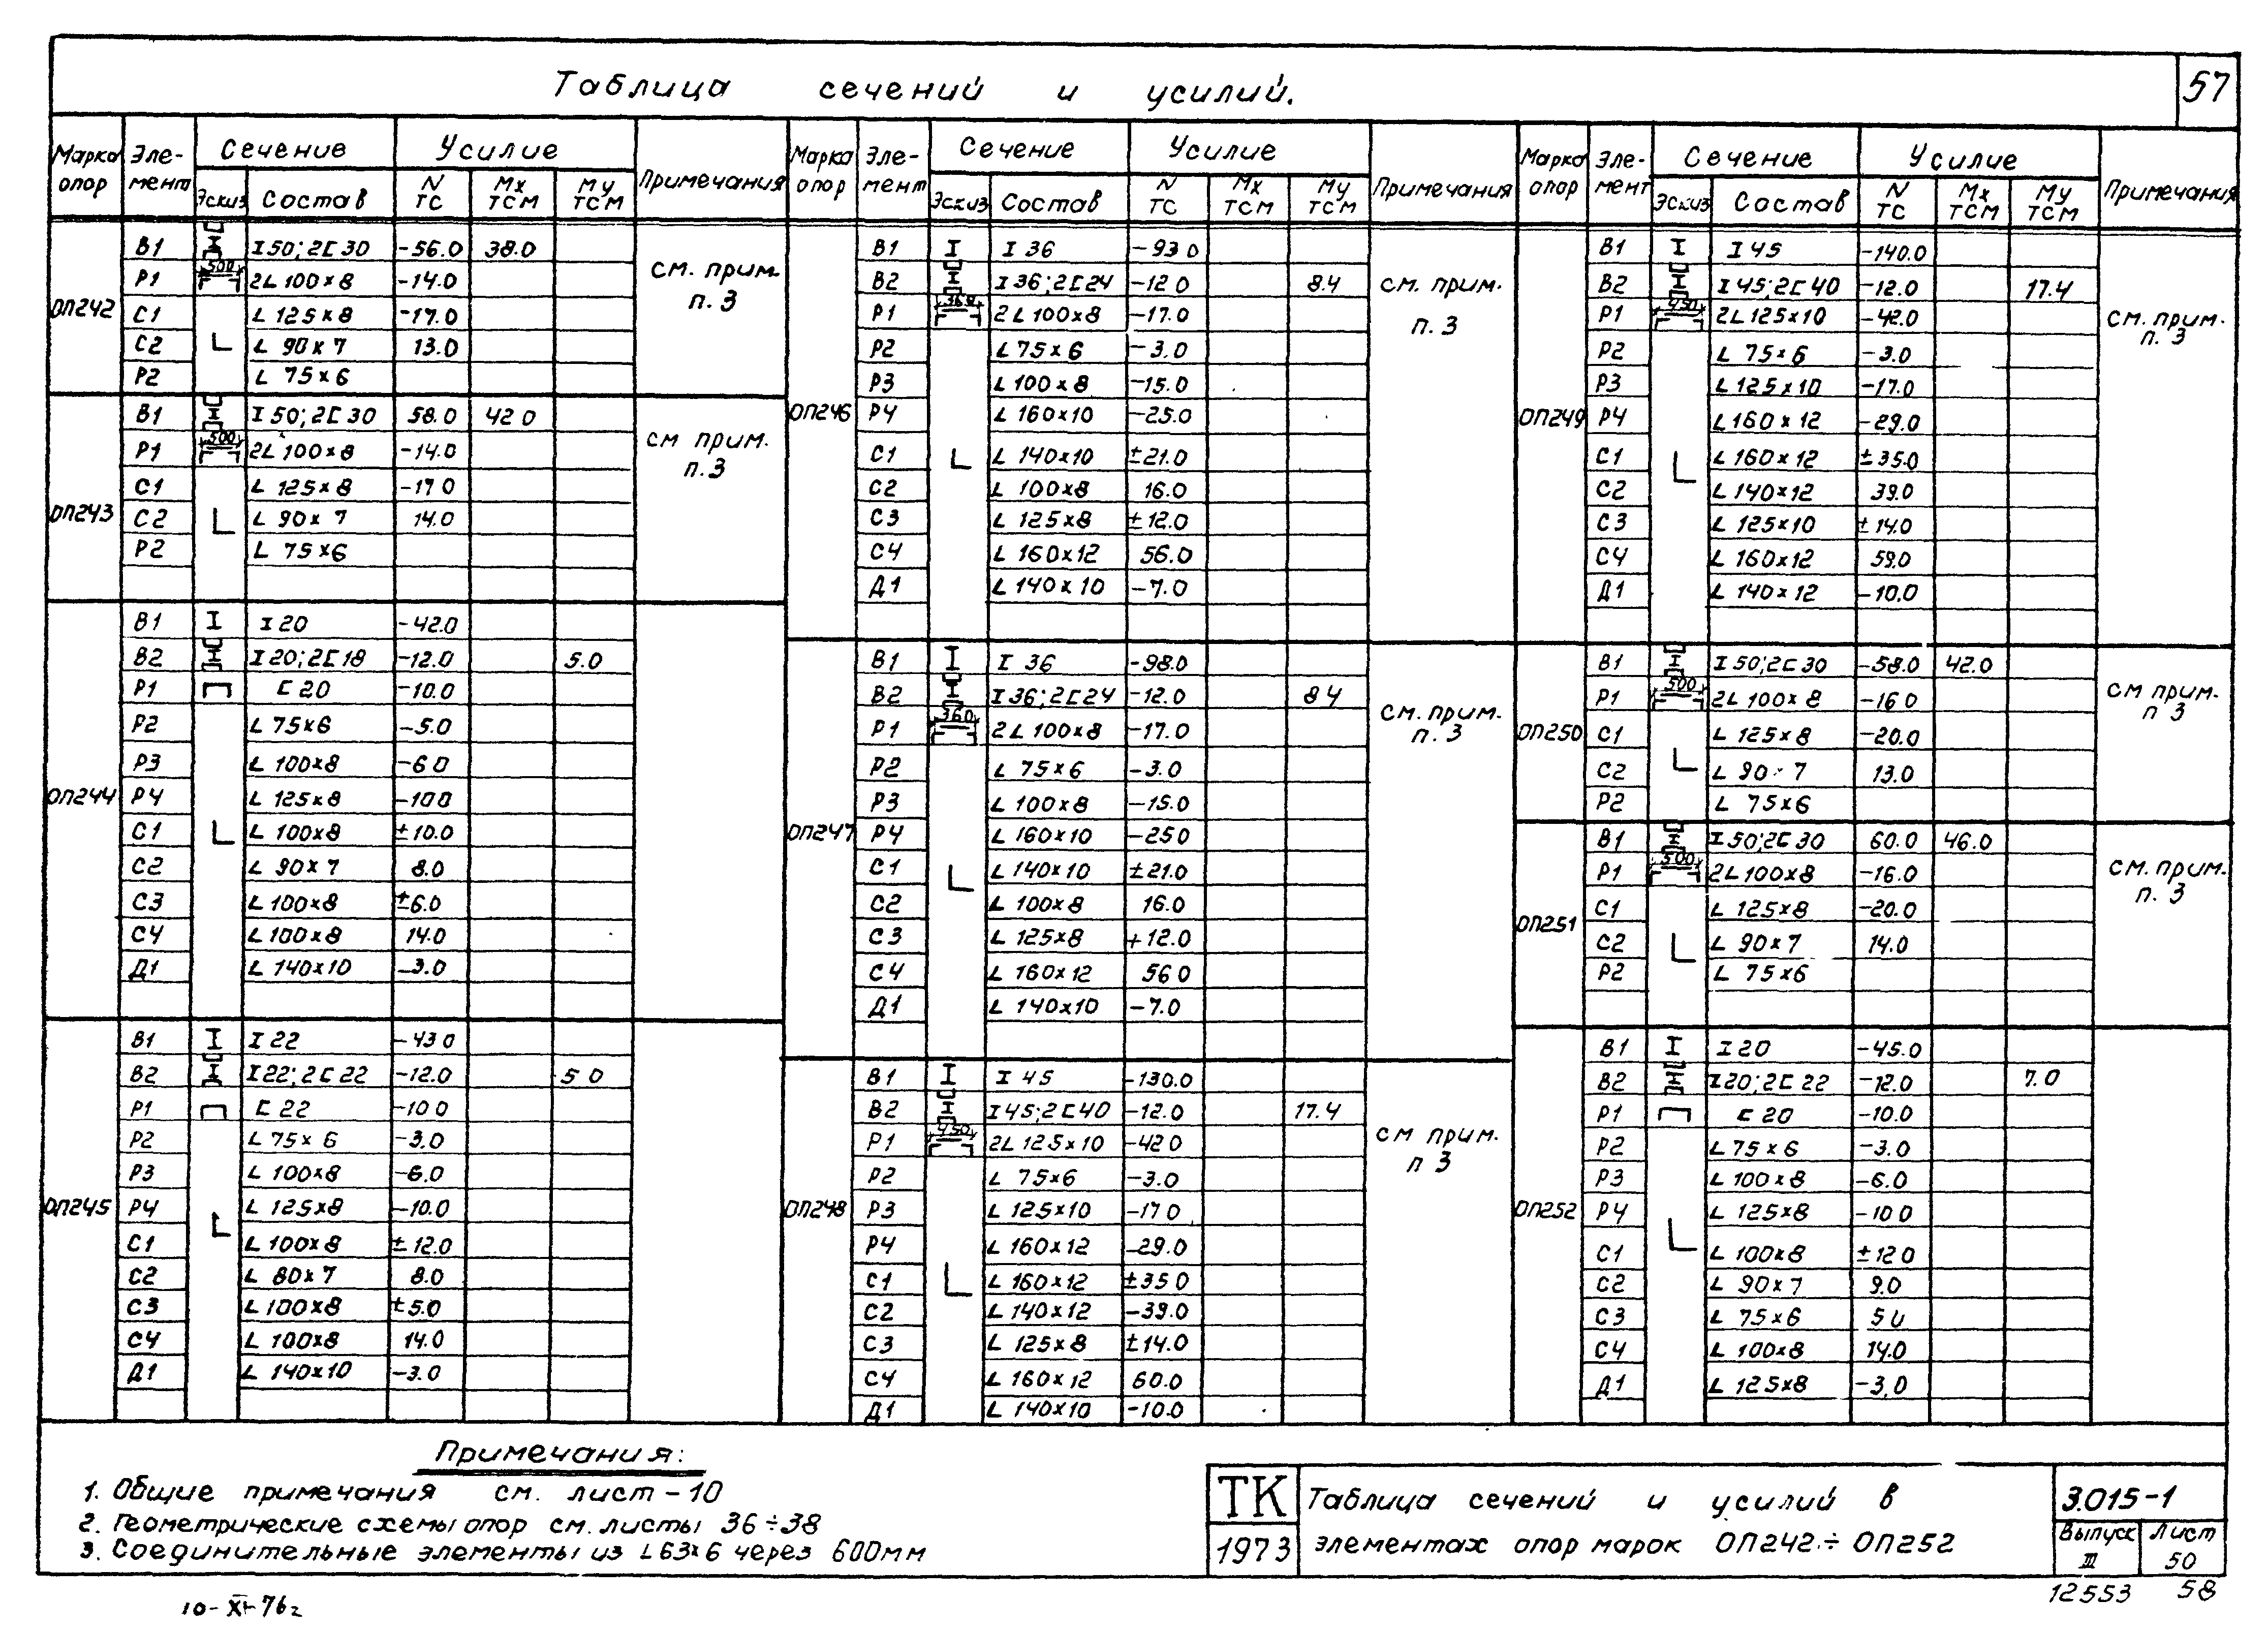 Таблица сечений и усилий.
57
Марка опор Элемент Сечение Усилие Примечания
Эскиз Состав N тс Mx тсм My тсм
ОП242
В1 I50; 2[30 -56.0 38.0 см. прим. п. 3
Р1 500 2L 100×8 -14.0
С1 L 125×8 -17.0
С2 L 90×7 13.0
Р2 L 75×6
ОП243
В1 I50; 2[30 58.0 42 0 см прим. п. 3
Р1 500 2L 100×8 -14.0
С1 L 125×8 -17 0
С2 L 90×7 14.0
Р2 L 75×6
ОП244
В1 I20 -42.0
В2 I20; 2[18 -12.0 5.0
Р1 [20 -10.0
Р2 L 75×6 -5.0
Р3 L 100×8 -6 0
Р4 L 125×8 -10 0
С1 L 100×8 ±10.0
С2 L 90×7 8.0
С3 L 100×8 ±6.0
С4 L 100×8 14.0
Д1 L 140×10 -3.0
ОП245
В1 I22 -43 0
В2 I22; 2[22 -12.0 5 0
Р1 [22 -10 0
Р2 L 75×6 -3.0
Р3 L 100×8 -6.0
Р4 L 125×8 -10.0
С1 L 100×8 ±12.0
С2 L 80×7 8.0
С3 L 100×8 ±5.0
С4 L 100×8 14.0
Д1 L 140×10 -3.0
Марка опор Элемент Сечение Усилие Примечания
Эскиз Состав N тс Mx тсм My тсм
ОП246
В1 I 36 -93 0 см. прим. п. 3
В2 I36; 2[24 -12 0 8.4
Р1 360 2L 100×8 -17.0
Р2 L 75×6 -3.0
Р3 L 100×8 -15.0
Р4 L 160×10 -25.0
С1 L 140×10 ±21.0
С2 L 100×8 16.0
С3 L 125×8 ±12.0
С4 L 160×12 56.0
Д1 L 140×10 -7.0
ОП247
В1 I 36 -98.0 см. прим. п. 3
В2 I36; 2[24 -12.0 8 4
Р1 360 2L 100×8 -17.0
Р2 L 75×6 -3.0
Р3 L 100×8 -15.0
Р4 L 160×10 -25 0
С1 L 140×10 ±21.0
С2 L 100×8 16.0
С3 L 125×8 +12.0
С4 L 160×12 56 0
Д1 L 140×10 -7.0
ОП248
В1 I 45 -130.0 см прим. п 3
В2 I45; 2[40 -12.0 17.4
Р1 450 2L 125×10 -42 0
Р2 L 75×6 -3.0
Р3 L 125×10 -17 0
Р4 L 160×12 -29.0
С1 L 160×12 ±35 0
С2 L 140×12 -39.0
С3 L 125×8 ±14.0
С4 L 160×12 60.0
Д1 L 140×10 -10.0
Марка опор Элемент Сечение Усилие Примечания
Эскиз Состав N тс Mx тсм My тсм
ОП249
В1 I 45 -140.0 см. прим. п. 3
В2 I45; 2[40 -12.0 17.4
Р1 450 2L 125×10 -42.0
Р2 L 75×6 -3.0
Р3 L 125×10 -17.0
Р4 L 160×12 -29.0
С1 L 160×12 ±35.0
С2 L 140×12 39.0
С3 L 125×10 ±14.0
С4 L 160×12 59.0
Д1 L 140×12 -10.0
ОП250
В1 I50; 2[30 -58.0 42.0 см прим. п 3
Р1 500 2L 100×8 -16 0
С1 L 125×8 -20.0
С2 L 90×7 13.0
Р2 L 75×6
ОП251
В1 I50; 2[30 60.0 46.0 см. прим. п. 3
Р1 500 2L 100×8 -16.0
С1 L 125×8 -20.0
С2 L 90×7 14.0
Р2 L 75×6
ОП252
В1 I20 -45.0
В2 I20; 2[22 -12.0 7.0
Р1 [20 -10.0
Р2 L 75×6 -3.0
Р3 L 100×8 -6.0
Р4 L 125×8 -10 0
С1 L 100×8 ±12 0
С2 L 90×7 9.0
С3 L 75×6 5 0
С4 L 100×8 14.0
Д1 L 125×8 -3,0
Примечания:
1. Общие примечания см. лист-10
2. Геометрические схемы опор см. листы 36÷38
3. Соединительные элементы из L63×6 через 600мм
ТК
1973
Таблица сечений и усилий в
элементах опор марок ОП242÷ОП252
3.015-1
Выпуск III
Лист 50
10-XI-76г
12553 58